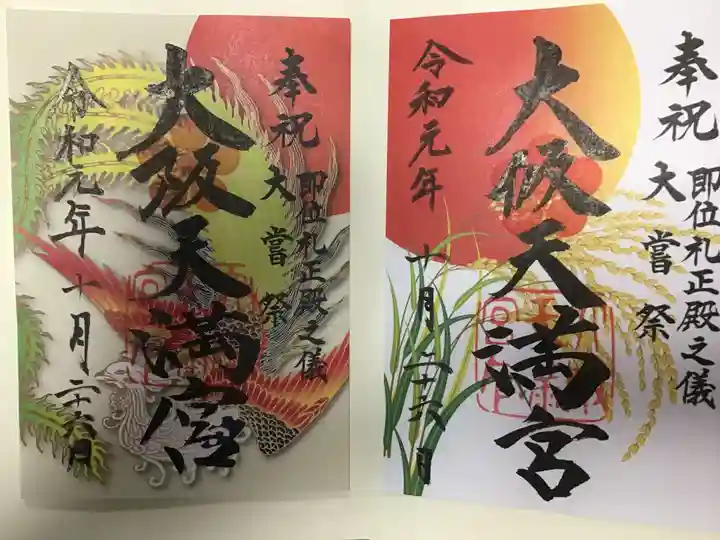 奉祝
即位礼正殿之儀
大嘗祭
大阪天満宮
令和元年十月二十六日
奉祝
即位礼正殿之儀
大嘗祭
大阪天満宮
令和元年
十月二十六日